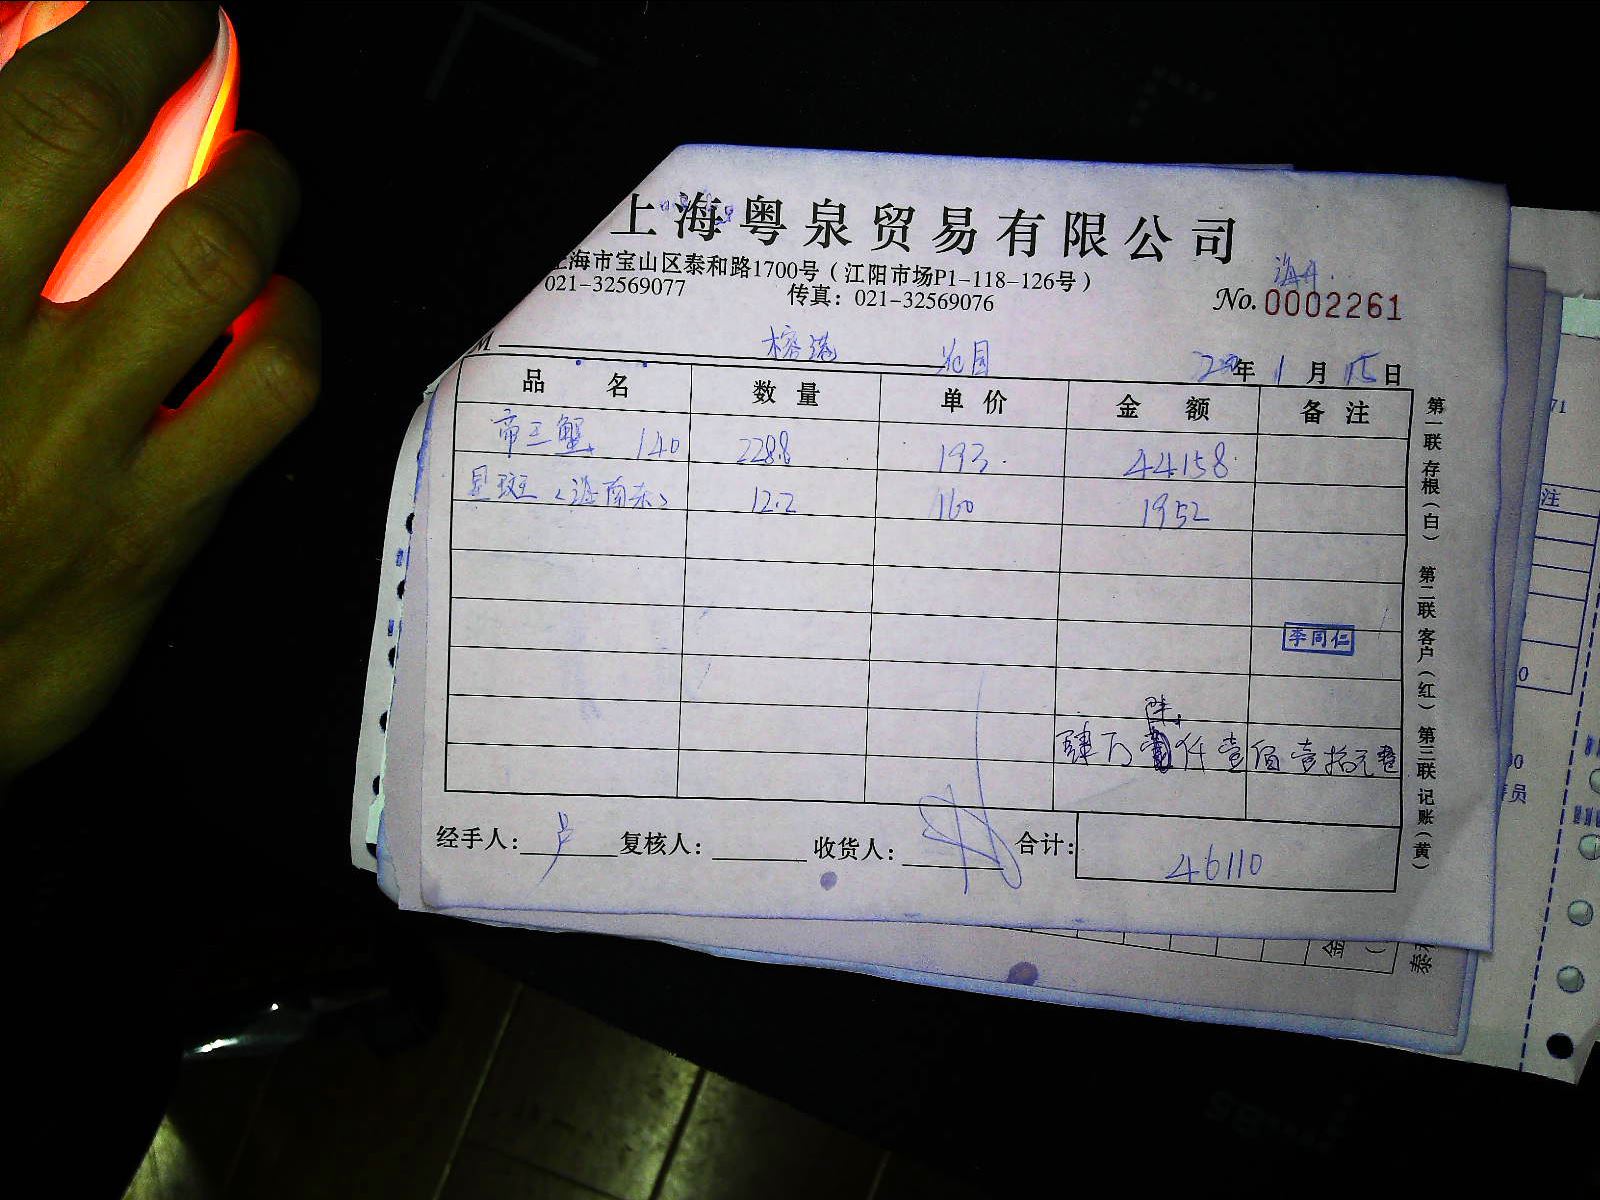 上海粤泉贸易有限公司
上海市宝山区泰和路1700号（江阳市场P1-118-126号）
021-32569077 传真：021-32569076
No. 0002261
M 榕港
年 1 月 15 日
品 名 数 量 单 价 金 额 备 注
帝王蟹 140 228.8 193. 44158
星斑（海南东） 12.2 160 1952
李同仁
陆
肆万 仟壹佰壹拾元整
经手人： 卢 复核人： 收货人： 合计： 46110
第一联 存根（白） 第二联 客户（红） 第三联 记账（黄）
注